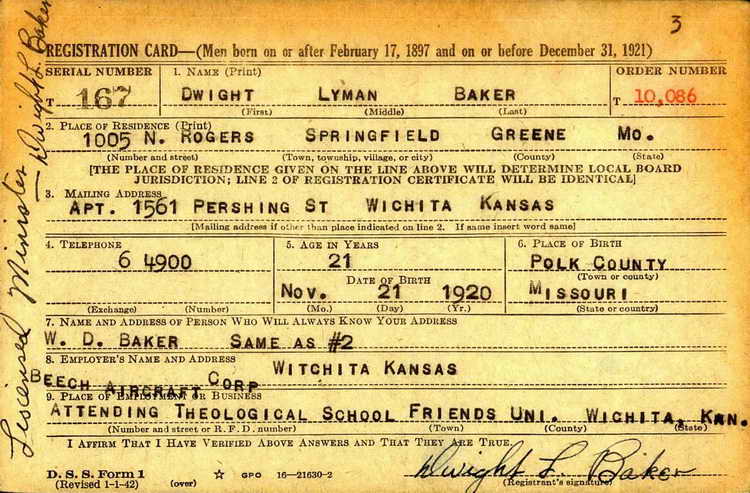 3
REGISTRATION CARD—(Men born on or after February 17, 1897 and on or before December 31, 1921)
SERIAL NUMBER 1. NAME (Print) ORDER NUMBER
T 167 DWIGHT LYMAN BAKER T 10,086
(First) (Middle) (Last)
2. PLACE OF RESIDENCE (Print)
1005 N. ROGERS SPRINGFIELD GREENE MO.
(Number and street) (Town, township, village, or city) (County) (State)
[THE PLACE OF RESIDENCE GIVEN ON THE LINE ABOVE WILL DETERMINE LOCAL BOARD
JURISDICTION; LINE 2 OF REGISTRATION CERTIFICATE WILL BE IDENTICAL]
3. MAILING ADDRESS
APT. 1561 PERSHING ST WICHITA KANSAS
[Mailing address if other than place indicated on line 2. If same insert word same]
4. TELEPHONE 5. AGE IN YEARS 6. PLACE OF BIRTH
6 4900 21 POLK COUNTY
DATE OF BIRTH (Town or county)
NOV. 21 1920 MISSOURI
(Exchange) (Number) (Mo.) (Day) (Yr.) (State or country)
7. NAME AND ADDRESS OF PERSON WHO WILL ALWAYS KNOW YOUR ADDRESS
W. D. BAKER SAME AS #2
8. EMPLOYER'S NAME AND ADDRESS
BEECH AIRCRAFT CORP WITCHITA KANSAS
9. PLACE OF EMPLOYMENT OR BUSINESS
ATTENDING THEOLOGICAL SCHOOL FRIENDS UNI. WICHITA, KAN.
(Number and street or R. F. D. number) (Town) (County) (State)
I AFFIRM THAT I HAVE VERIFIED ABOVE ANSWERS AND THAT THEY ARE TRUE.
D. S. S. Form 1
(Revised 1-1-42) (over) ☆ GPO 16—21630-2 Dwight L. Baker
(Registrant's signature)
Liscensed Minister
Dwight L. Baker